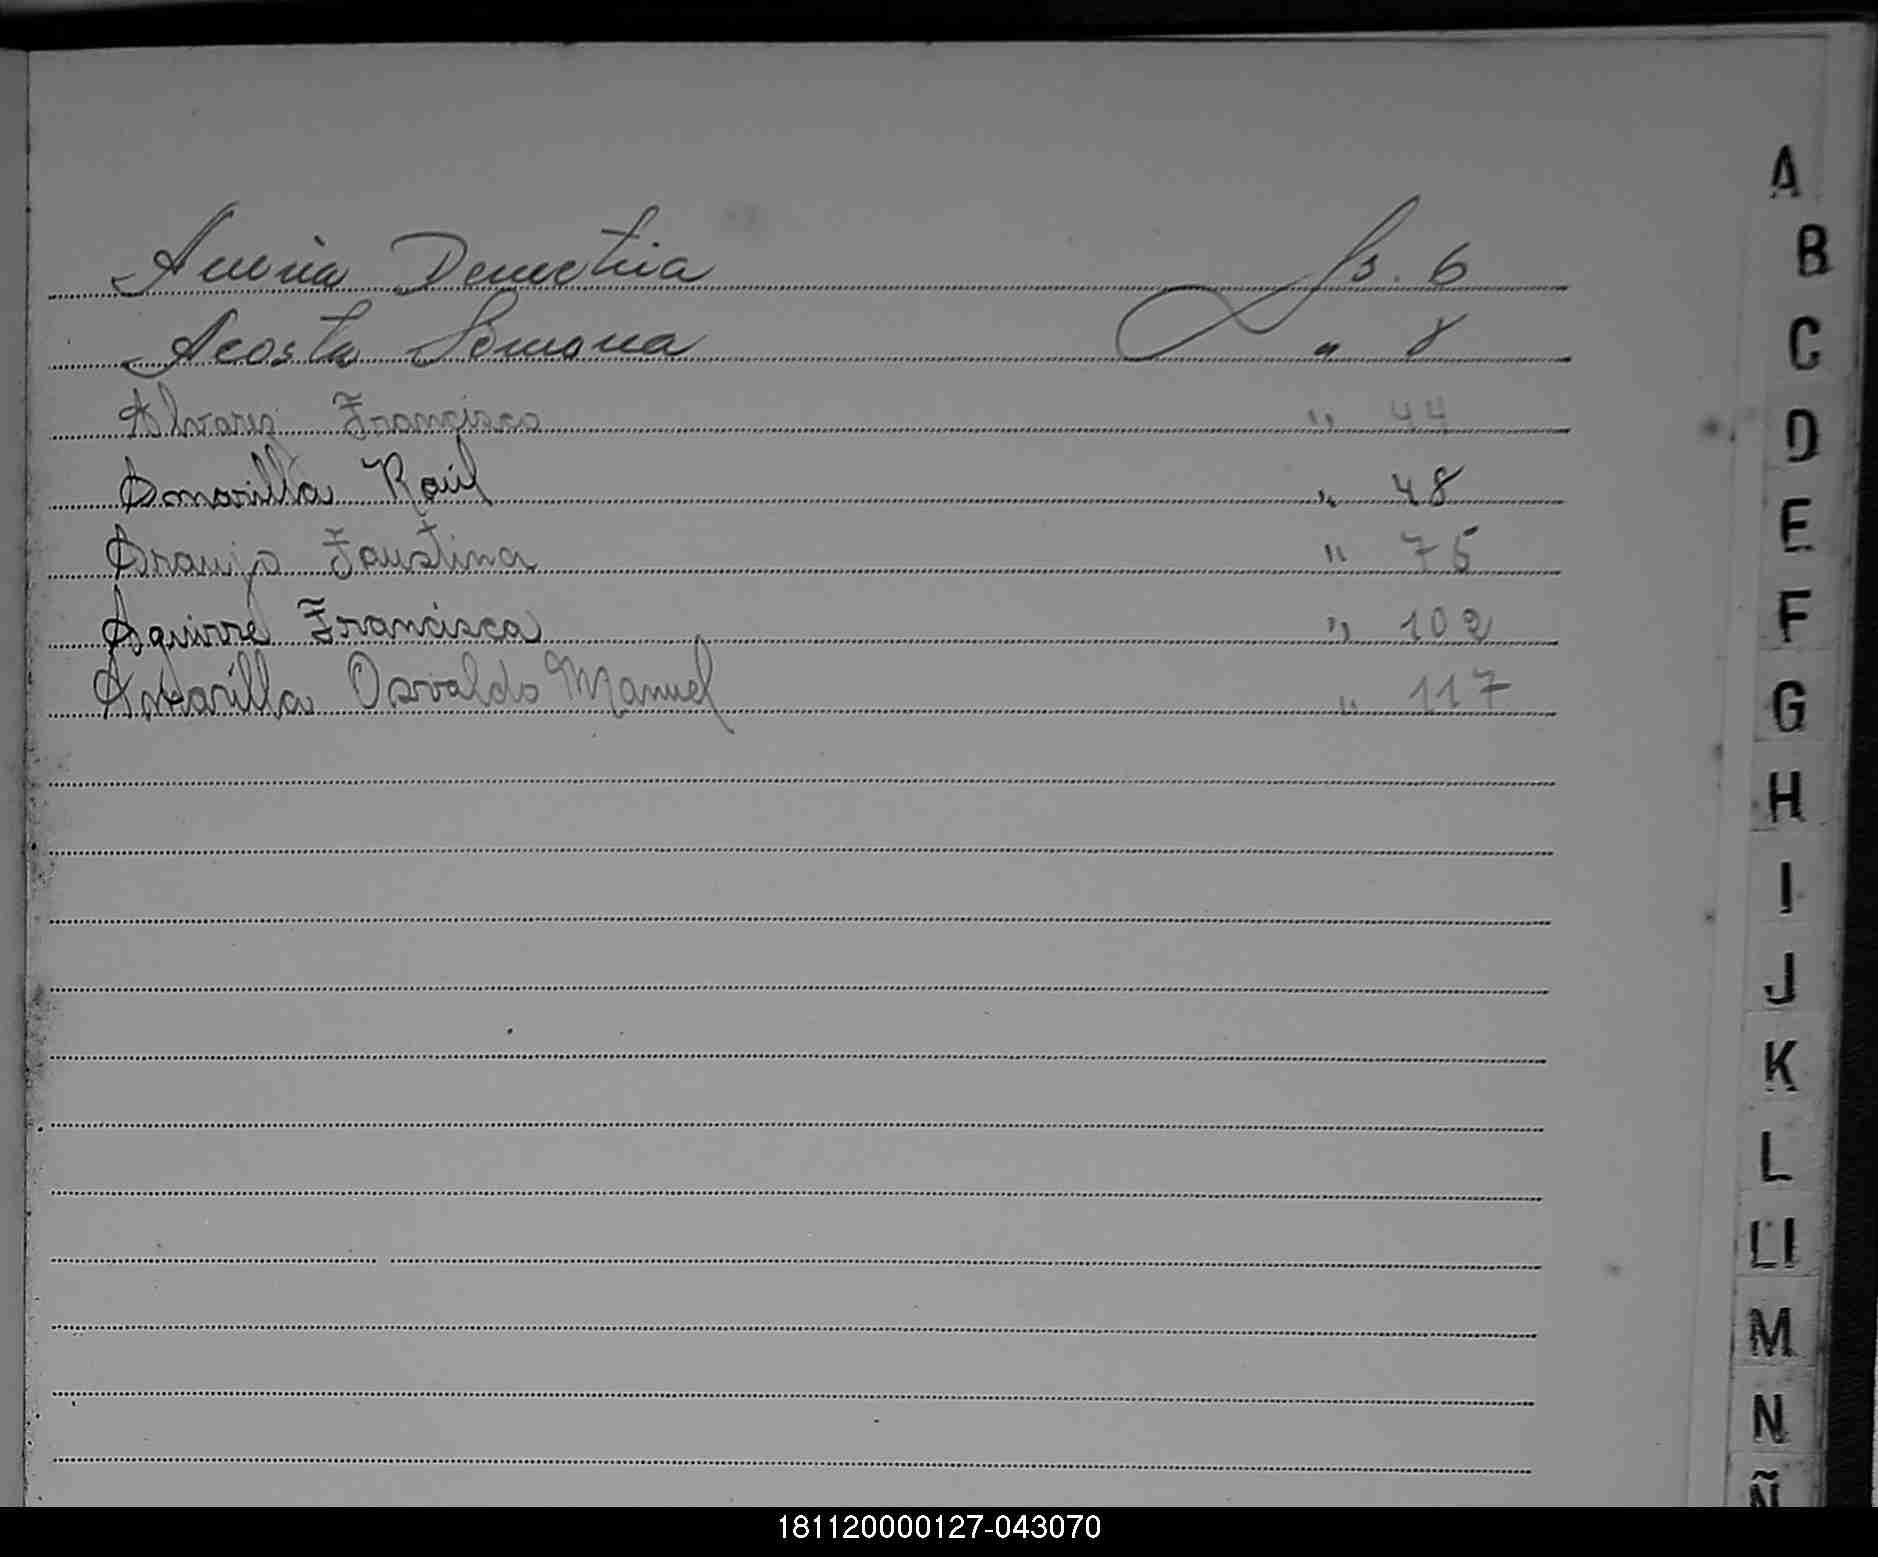 Demetria fs. 6
Acosta Ramona " 8
Alvarez Francisco " 44
Amarilla Raúl " 48
Araujo Faustina " 75
Aguirre Francisca " 102
Amarilla Osvaldo Manuel " 117
A
B
C
D
E
F
G
H
I
J
K
L
Ll
M
N
Ñ
181120000127-043070